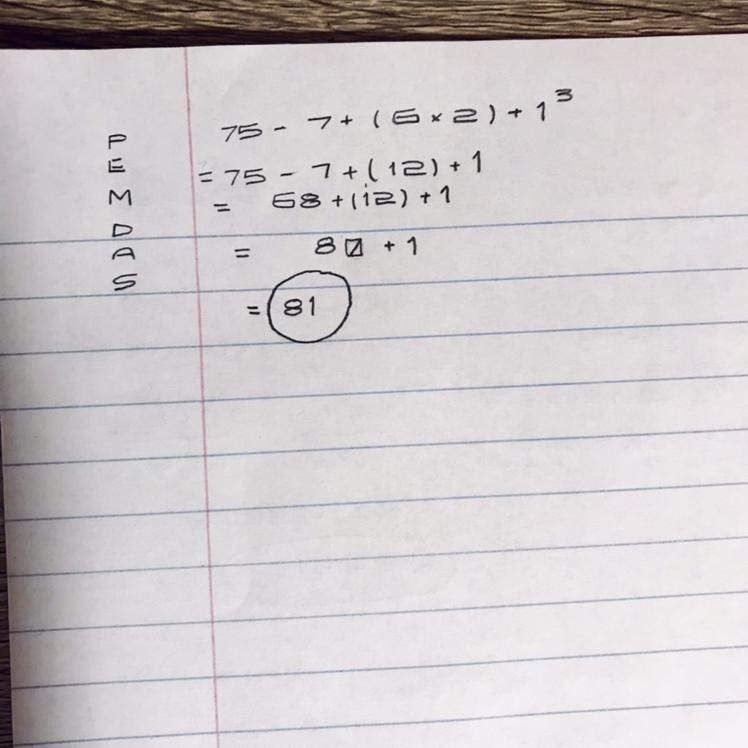 P
E
M
D
A
S
75 - 7 + (6 × 2) + 1³
= 75 - 7 + (12) + 1
= 68 + (12) + 1
= 80 + 1
= 81